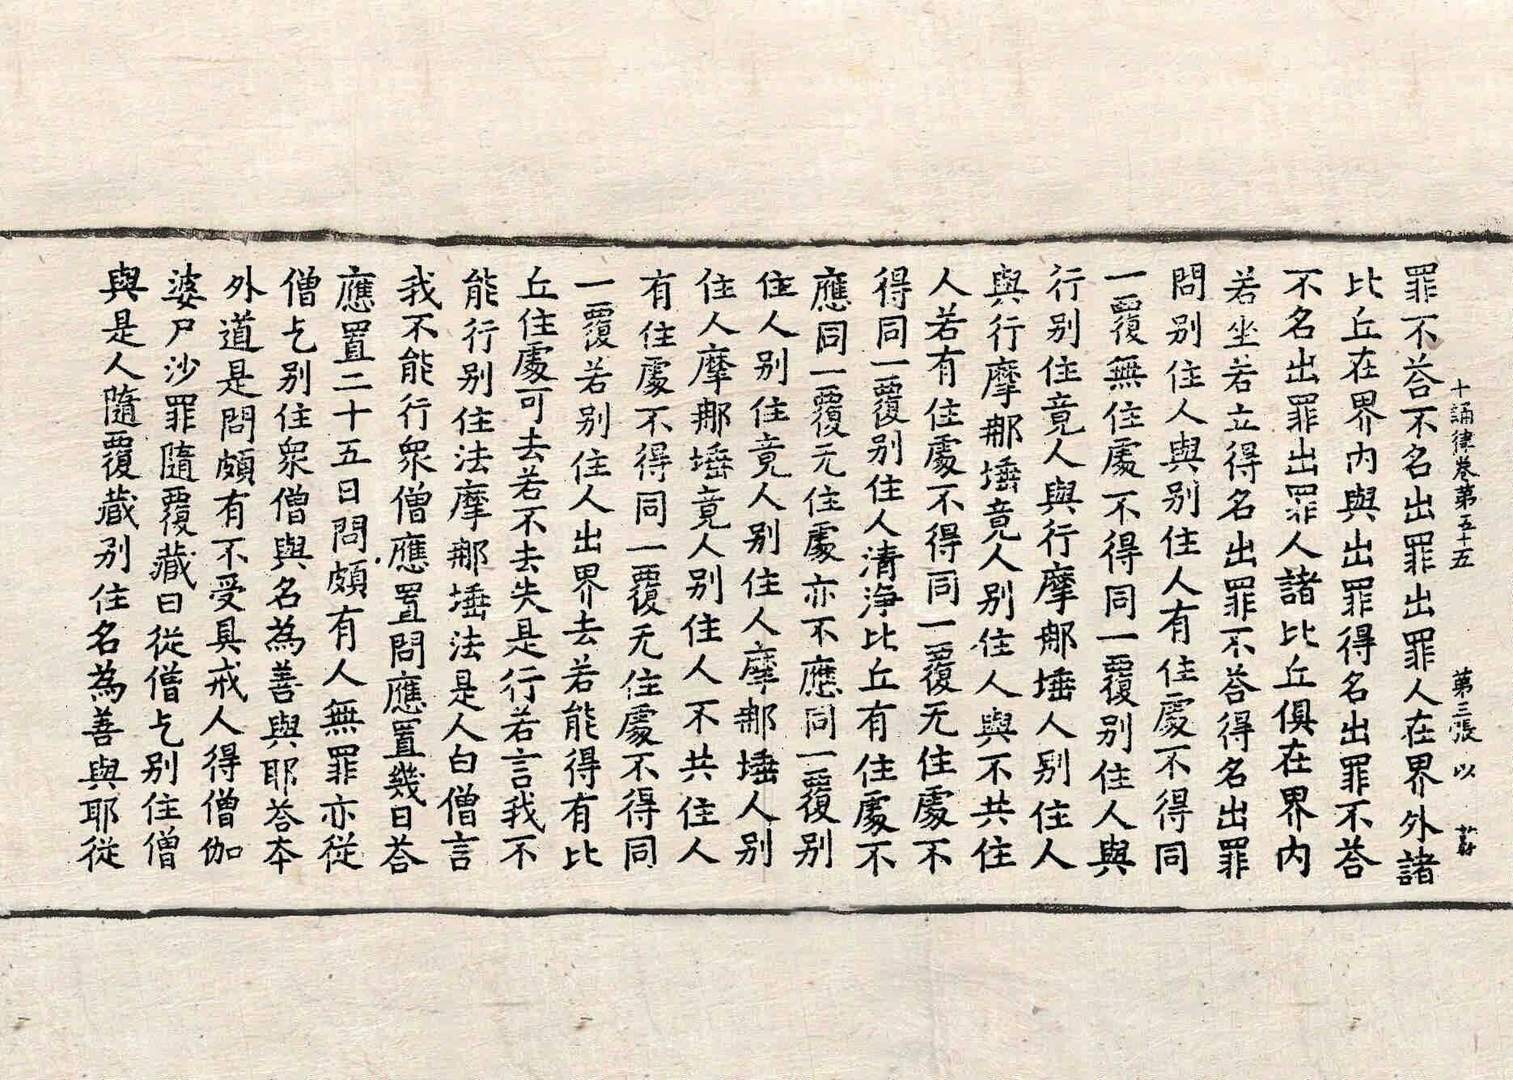 十誦律卷第五十五 第三張 以
罪不荅不名出罪出罪人在界外諸
比丘在界内與出罪得名出罪不荅
不名出罪出罪人諸比丘俱在界内
若坐若立得名出罪不荅得名出罪
問别住人與别住人有住處不得同
一覆無住處不得同一覆别住人與
行别住竟人與行摩那埵人别住人
與行摩那埵竟人别住人與不共住
人若有住處不得同一覆无住處不
得同一覆别住人清淨比丘有住處不
應同一覆无住處亦不應同一覆别
住人别住竟人别住人摩那埵人别
住人摩那埵竟人别住人不共住人
有住處不得同一覆无住處不得同
一覆若别住人出界去若能得有比
丘住處可去若不去失是行若言我不
能行别住法摩那埵法是人白僧言
我不能行衆僧應置問應置幾日荅
應置二十五日問頗有人無罪亦從
僧乞别住衆僧與名為善與耶荅本
外道是問頗有不受具戒人得僧伽
婆尸沙罪隨覆藏日從僧乞别住僧
與是人隨覆藏别住名為善與耶從